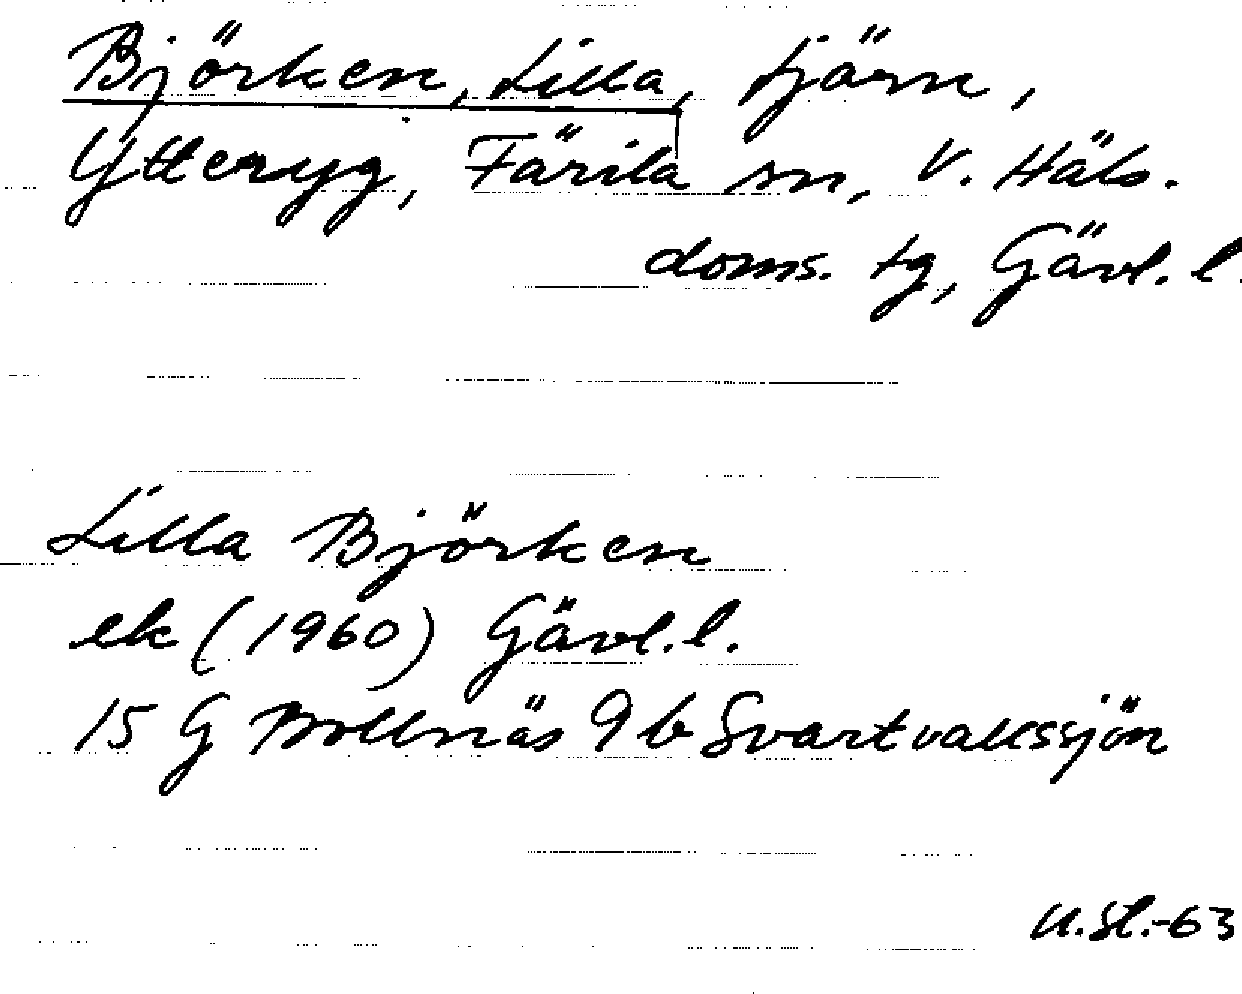 Björken, Lilla, tjärn,
Ytteryg, Färila sn, V. Häls.
doms. tg, Gävl. l.
Lilla Björken
ek (1960) Gävl. l.
15 G Bollnäs 9 b Svartvallssjön
U.Sl.-63